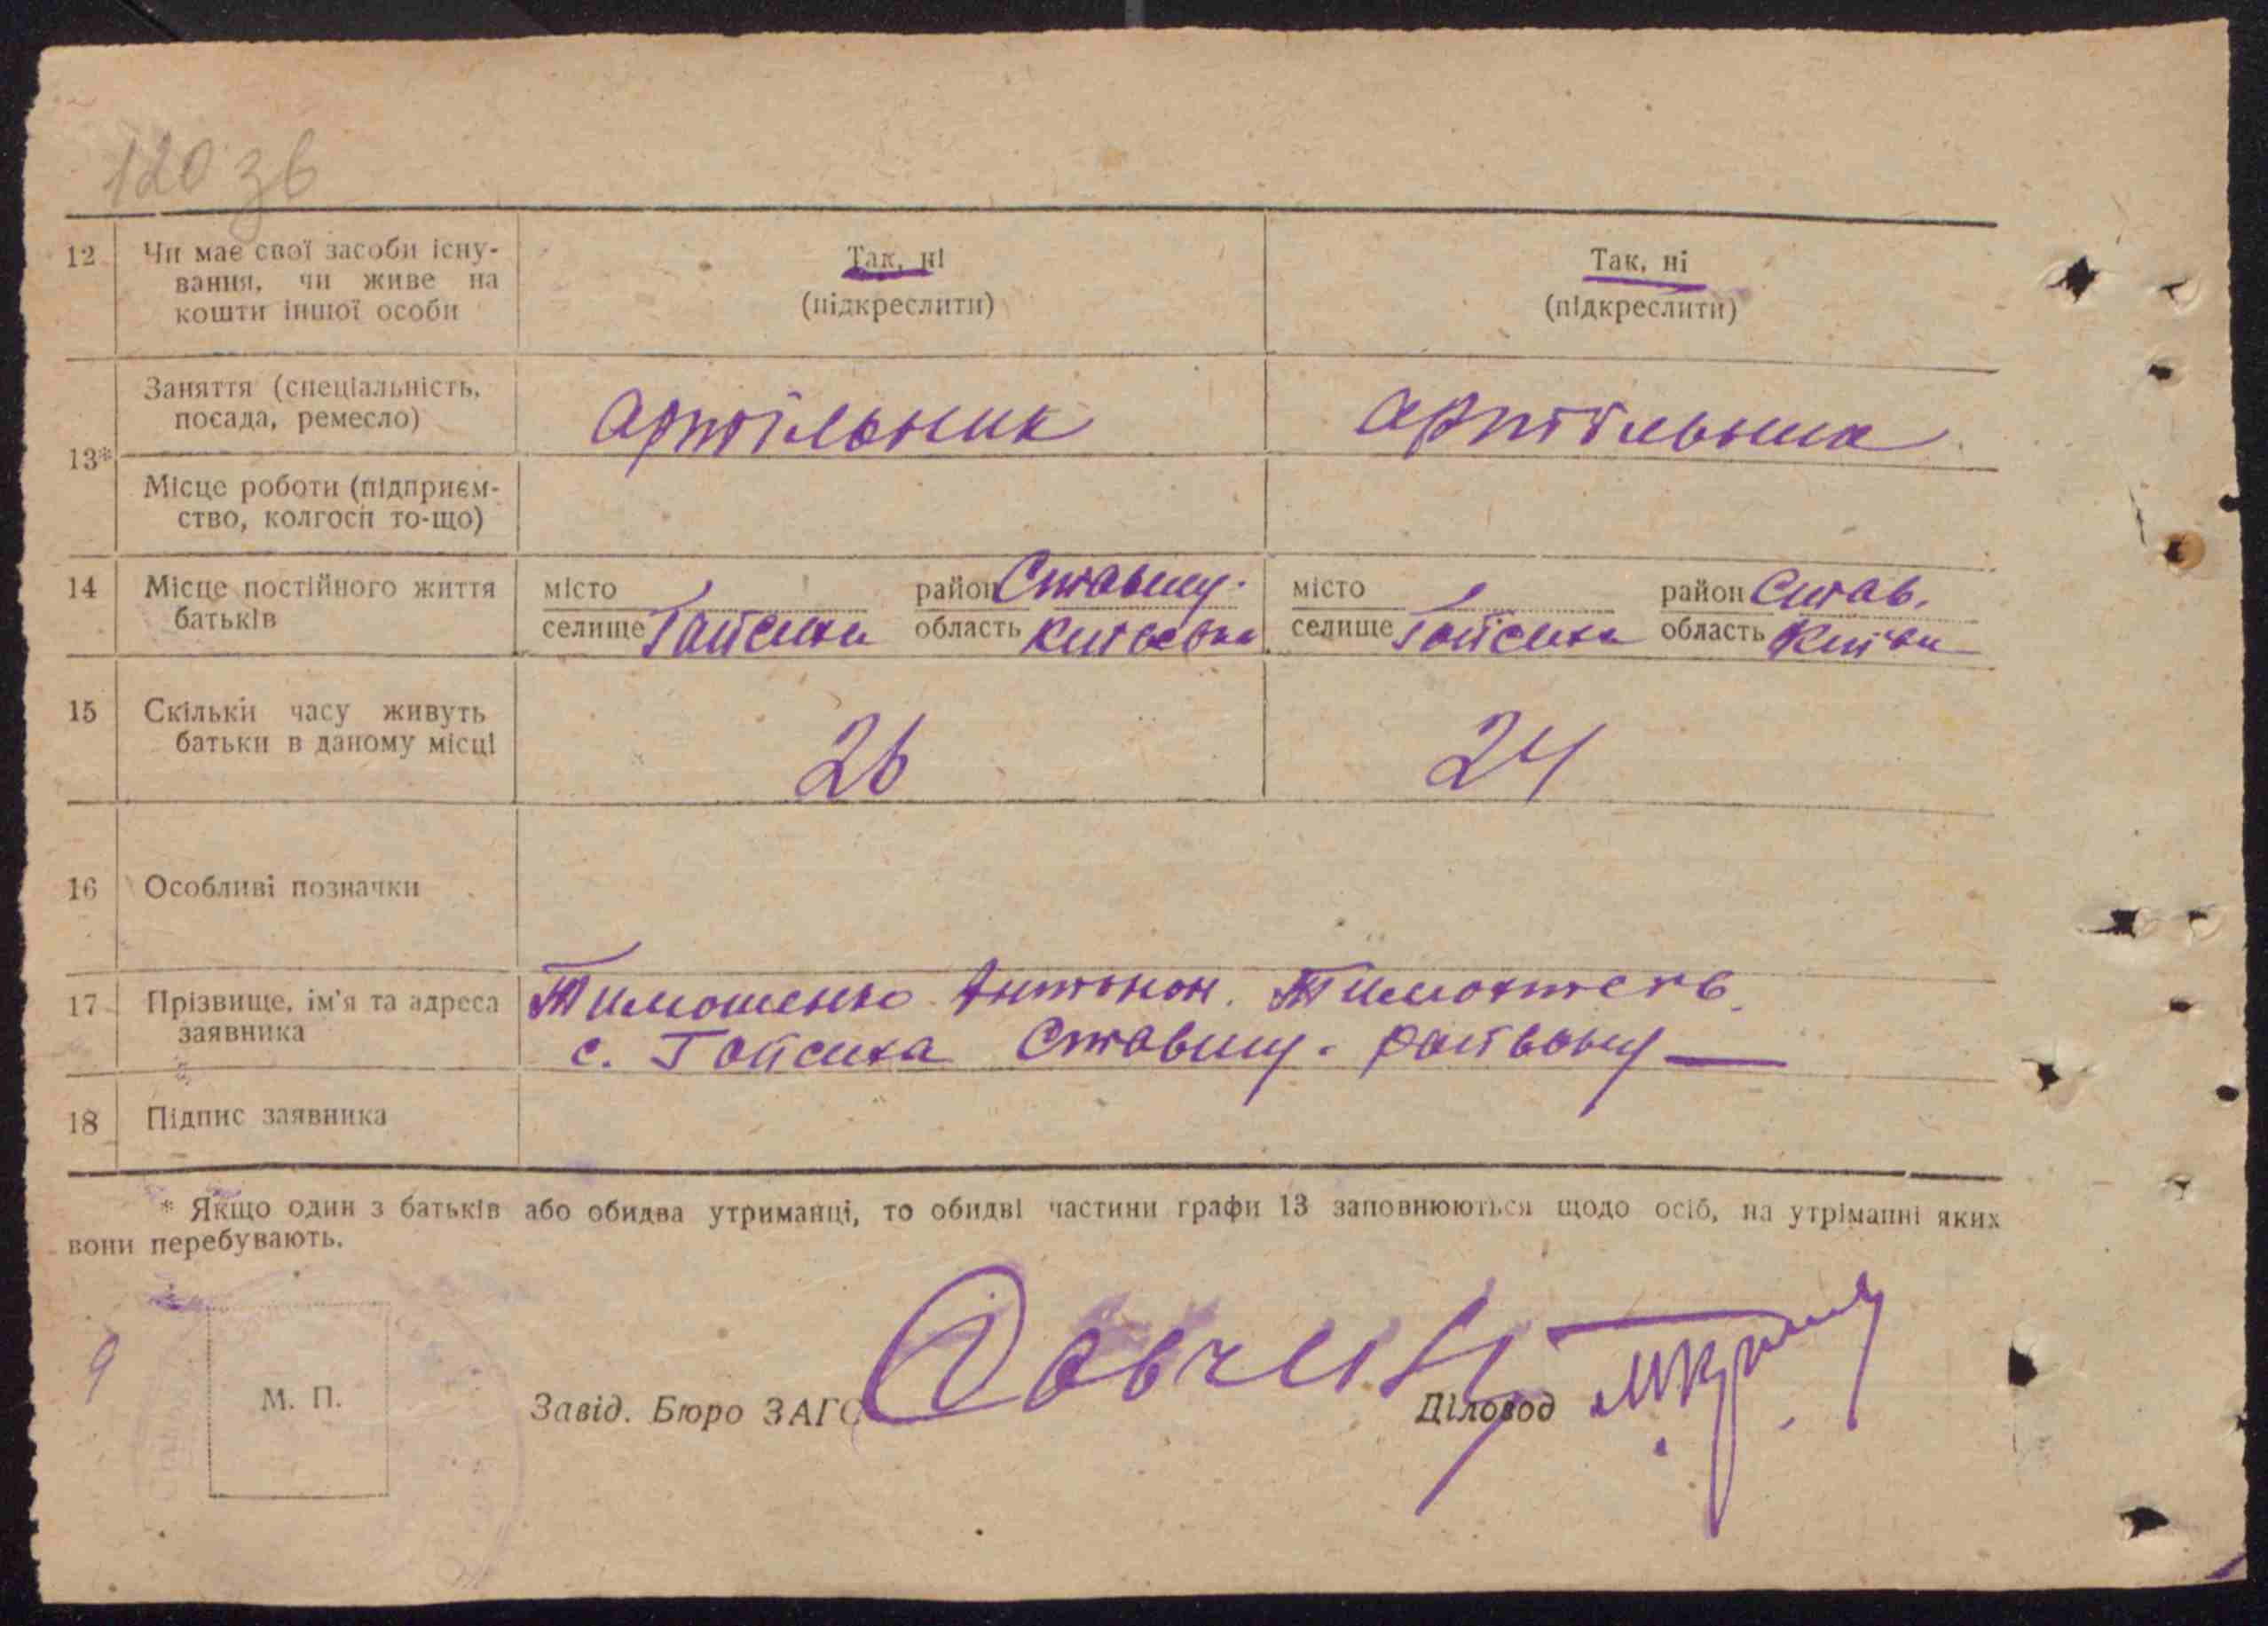 120 зв
12 Чи має свої засоби існу- Так, ні Так, ні
вання, чи живе на (підкреслити) (підкреслити)
кошти іншої особи
Заняття (спеціальність,
посада, ремесло) артільник артільниця
13*
Місце роботи (підприєм-
ство, колгосп то-що)
14 Місце постійного життя місто район Ставищ. місто район Став.
батьків селище Гайсиха область Київська селище Гайсиха область Київ
15 Скільки часу живуть
батьки в даному місці 26 24
16 Особливі позначки
17 Прізвище, ім'я та адреса Тимошенко Антонон. Тимохтеєв.
заявника с. Гайсиха Ставищ.
18 Підпис заявника
* Якщо один з батьків або обидва утриманці, то обидві частини графи 13 заповнюються щодо осіб, на утріманні яких
вони перебувають.
9
М. П. Завід. Бюро ЗАГС Діловод